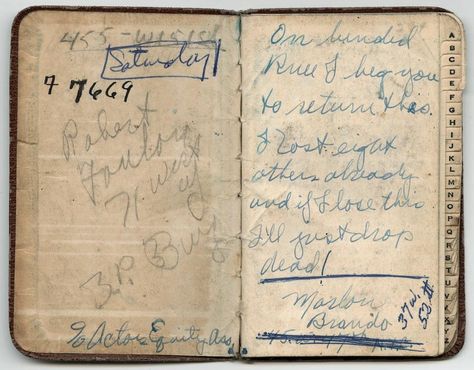 455-
Saturday
7 7669
Robert
71 West
3P.
% Actors Equity Ass.
On bended
Knee I beg you
to return this.
I lost eight
others already
and if I lose this
I'll just drop
dead!
Marlon
Brando
37 W.
53 St
A
B
C
D
E
F
G
H
I
J
K
L
M
N
O
P
Q
R
S
T
U
V
W
X
Y
Z